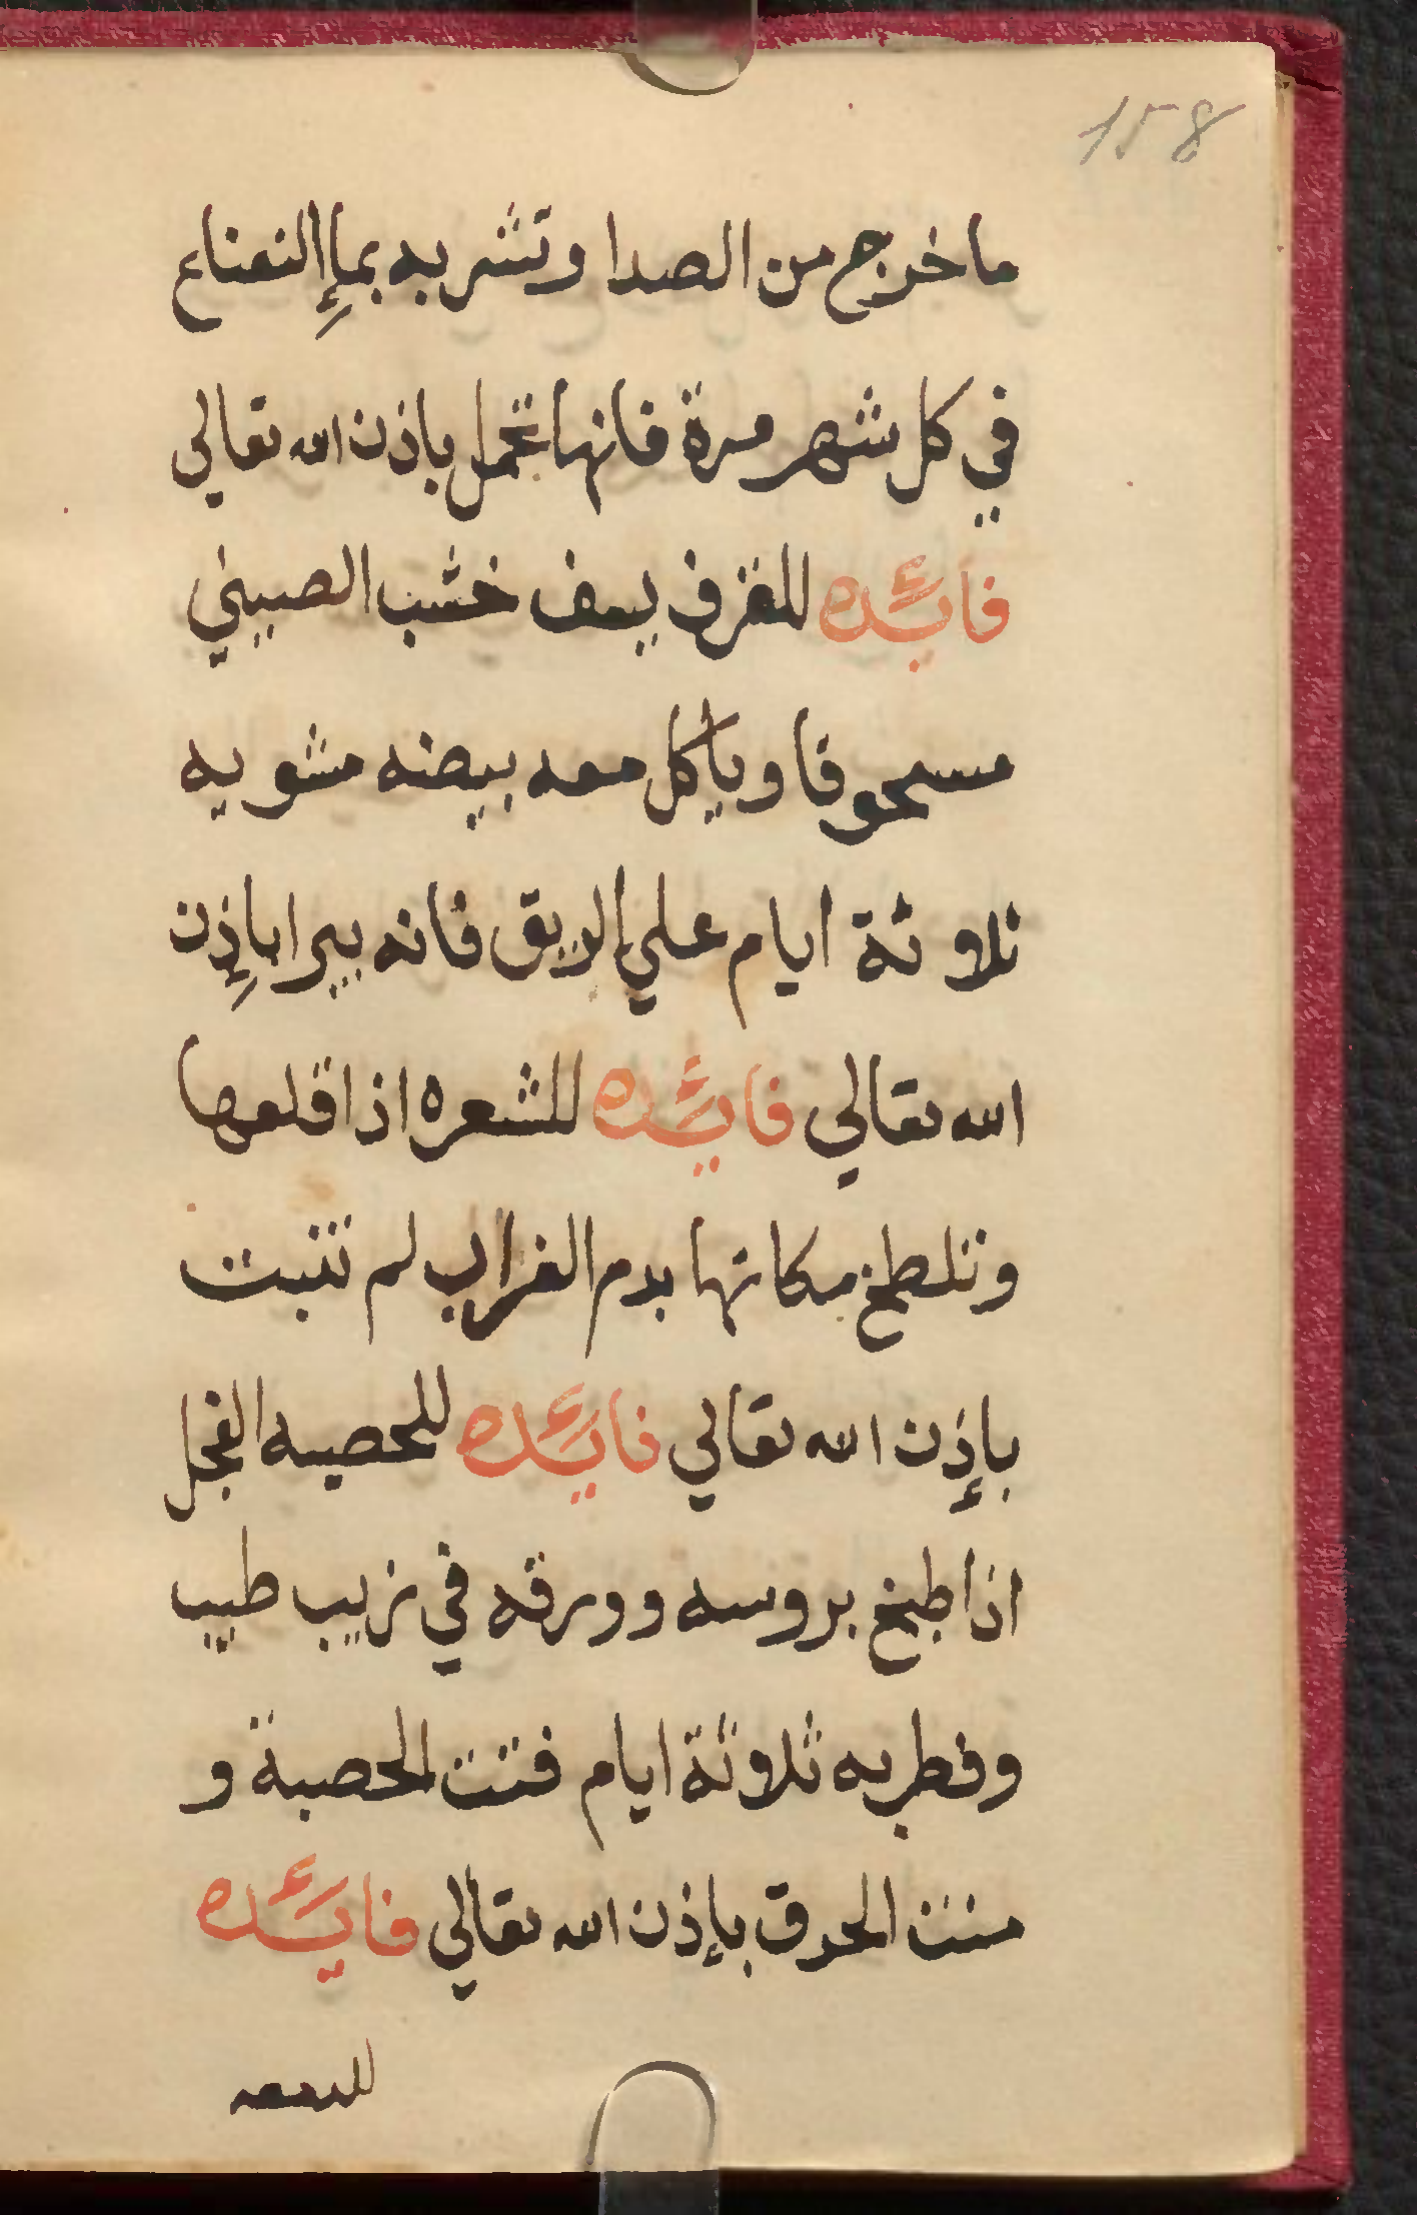 158
ماخرج من الصدا وتشربه بماء النعناع
في كل شهر مرة فانها تحمل باذن الله تعالي
فائده للنزف يسف خشب الصيني
مسحوقا وياكل معه بيضه مشويه
ثلاوثة ايام علي الريق فانه يبرا باذن
الله تعالي فائده للشعره اذا قلعها
وتلطخ مكانها بدم الغراب لم تنبت
بإذن الله تعالي فائده للحصيه الفجل
اذا طبخ بروسه وورقه في زيب طيب
وفطر به ثلاوثة ايام فتت الحصبة و
منت الحرق بإذن الله تعالي فائده
للدمعه